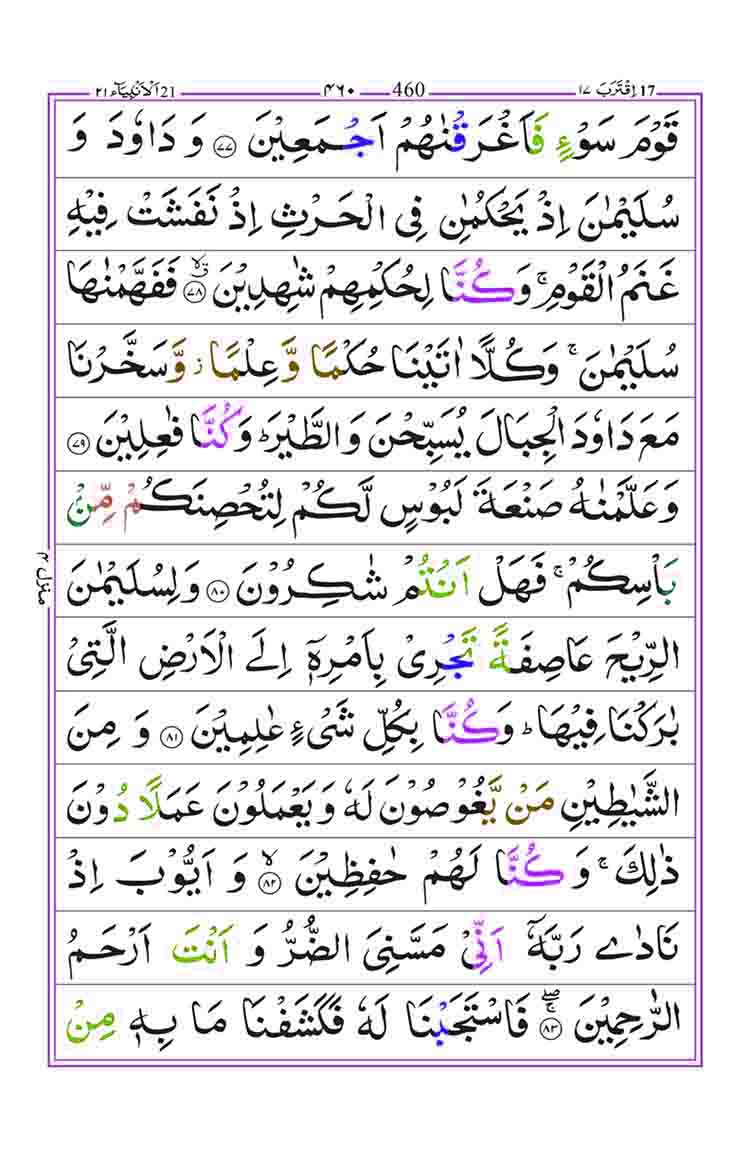 اِقْتَرَبَ ١٧ 17
460 ٤٦٠
اَلْاَنْۢبِيَآء ٢١ 21
قَوْمَ سَوْءٍ فَاَغْرَقْنٰهُمْ اَجْمَعِيْنَ ۝٧٧ وَ دَاوٗدَ وَ
سُلَيْمٰنَ اِذْ يَحْكُمٰنِ فِى الْحَرْثِ اِذْ نَفَشَتْ فِيْهِ
غَنَمُ الْقَوْمِ ۚ وَكُنَّا لِحُكْمِهِمْ شٰهِدِيْنَ ۝٧٨ۙ فَفَهَّمْنٰهَا
سُلَيْمٰنَ ۚ وَكُلًّا اٰتَيْنَا حُكْمًا وَّعِلْمًا ز وَّسَخَّرْنَا
مَعَ دَاوٗدَ الْجِبَالَ يُسَبِّحْنَ وَالطَّيْرَ ؕ وَكُنَّا فٰعِلِيْنَ ۝٧٩
وَعَلَّمْنٰهُ صَنْعَةَ لَبُوْسٍ لَّكُمْ لِتُحْصِنَكُمْ مِّنْۢ
بَاْسِكُمْ ۚ فَهَلْ اَنْتُمْ شٰكِرُوْنَ ۝٨٠ وَلِسُلَيْمٰنَ
الرِّيْحَ عَاصِفَةً تَجْرِىْ بِاَمْرِهٖۤ اِلَى الْاَرْضِ الَّتِىْ
بٰرَكْنَا فِيْهَا ؕ وَكُنَّا بِكُلِّ شَىْءٍ عٰلِمِيْنَ ۝٨١ وَ مِنَ
الشَّيٰطِيْنِ مَنْ يَّغُوْصُوْنَ لَهٗ وَيَعْمَلُوْنَ عَمَلًا دُوْنَ
ذٰلِكَ ۚ وَ كُنَّا لَهُمْ حٰفِظِيْنَ ۝٨٢ۙ وَ اَيُّوْبَ اِذْ
نَادٰى رَبَّهٗۤ اَنِّىْ مَسَّنِىَ الضُّرُّ وَ اَنْتَ اَرْحَمُ
الرّٰحِمِيْنَ ۝٨٣ۚۖ فَاسْتَجَبْنَا لَهٗ فَكَشَفْنَا مَا بِهٖ مِنْ
منزل ٤